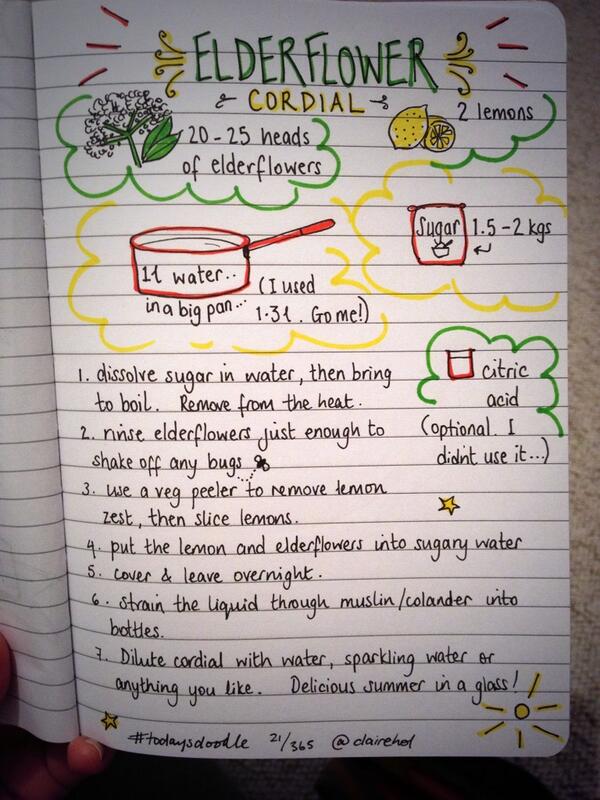 ELDERFLOWER
CORDIAL
20-25 heads
of elderflowers
2 lemons
1l water..
in a big pan...
(I used
1.3l. Go me!)
Sugar
1.5-2 kgs
citric
acid
(optional. I
didn't use it...)
1. dissolve sugar in water, then bring
to boil. Remove from the heat.
2. rinse elderflowers just enough to
shake off any bugs
3. use a veg peeler to remove lemon
zest, then slice lemons.
4. put the lemon and elderflowers into sugary water
5. cover & leave overnight.
6. strain the liquid through muslin/colander into
bottles.
7. Dilute cordial with water, sparkling water or
anything you like. Delicious summer in a glass!
#todaysdoodle 21/365 @clairehol